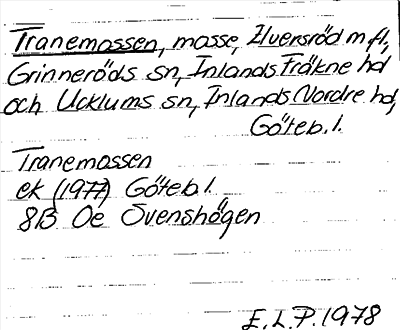 Tranemossen, mosse, Ilversröd m fl,
Grinneröds sn, Inlands Fräkne hd
och Ucklums sn, Inlands Nordre hd,
Göteb. l.
Tranemossen
ek (1977) Göteb l.
8B Oe Svenshögen
E. L. P. 1978